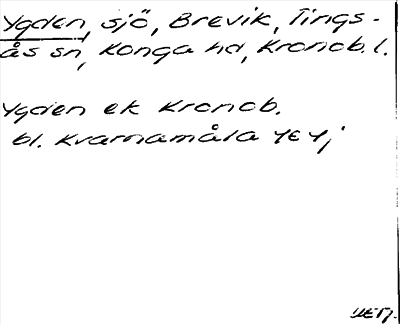 Ygden, sjö, Brevik, Tings-
ås sn, Konga hd, Kronob. l.
Ygden ek Kronob.
bl. Kvarnamåla